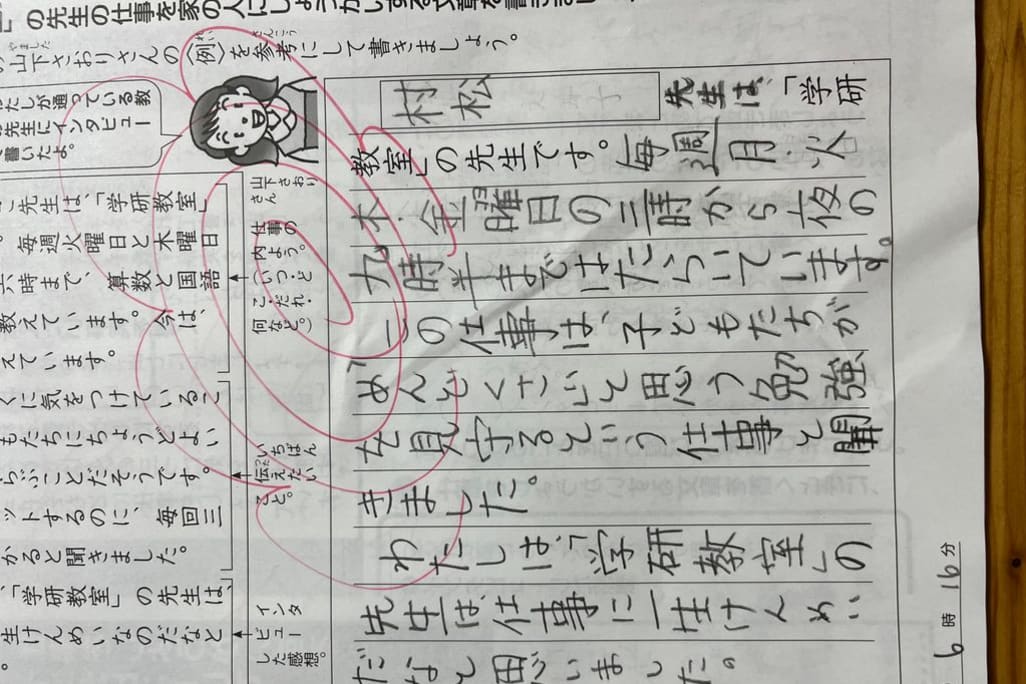 」の先生の仕事を家の人にしょうかいする文章を書きまし
山下さおりさんの〈例〉を参考にして書きましょう。
村松 先生は、「学研
教室」の先生です。毎週月火
木・金曜日の三時から夜の
九時半まではたらいています。
この仕事は、子どもたちが
めんどくさいて思う勉強
を見守るという仕事と聞
きました。
わたしは、「学研教室」の
先生は仕事に一生けんめい
だなと思いました。
6時16分
たしが通っている教
先生にインタビュー
書いたよ。
山下さおり
さん
先生は「学研教室」
毎週火曜日と木曜日
六時まで、算数と国語
教えています。今は、
えています。
くに気をつけているこ
もたちにちょうどよい
らぶことだそうです。
ットするのに、毎回三
かると聞きました。
「学研教室」の先生は、
生けんめいなのだなと
仕事の
内よう。
(いつ・ど
こ・だれ・
何など。)
いちばん
伝えたい
こと。
インタ
ビュー
した感想。